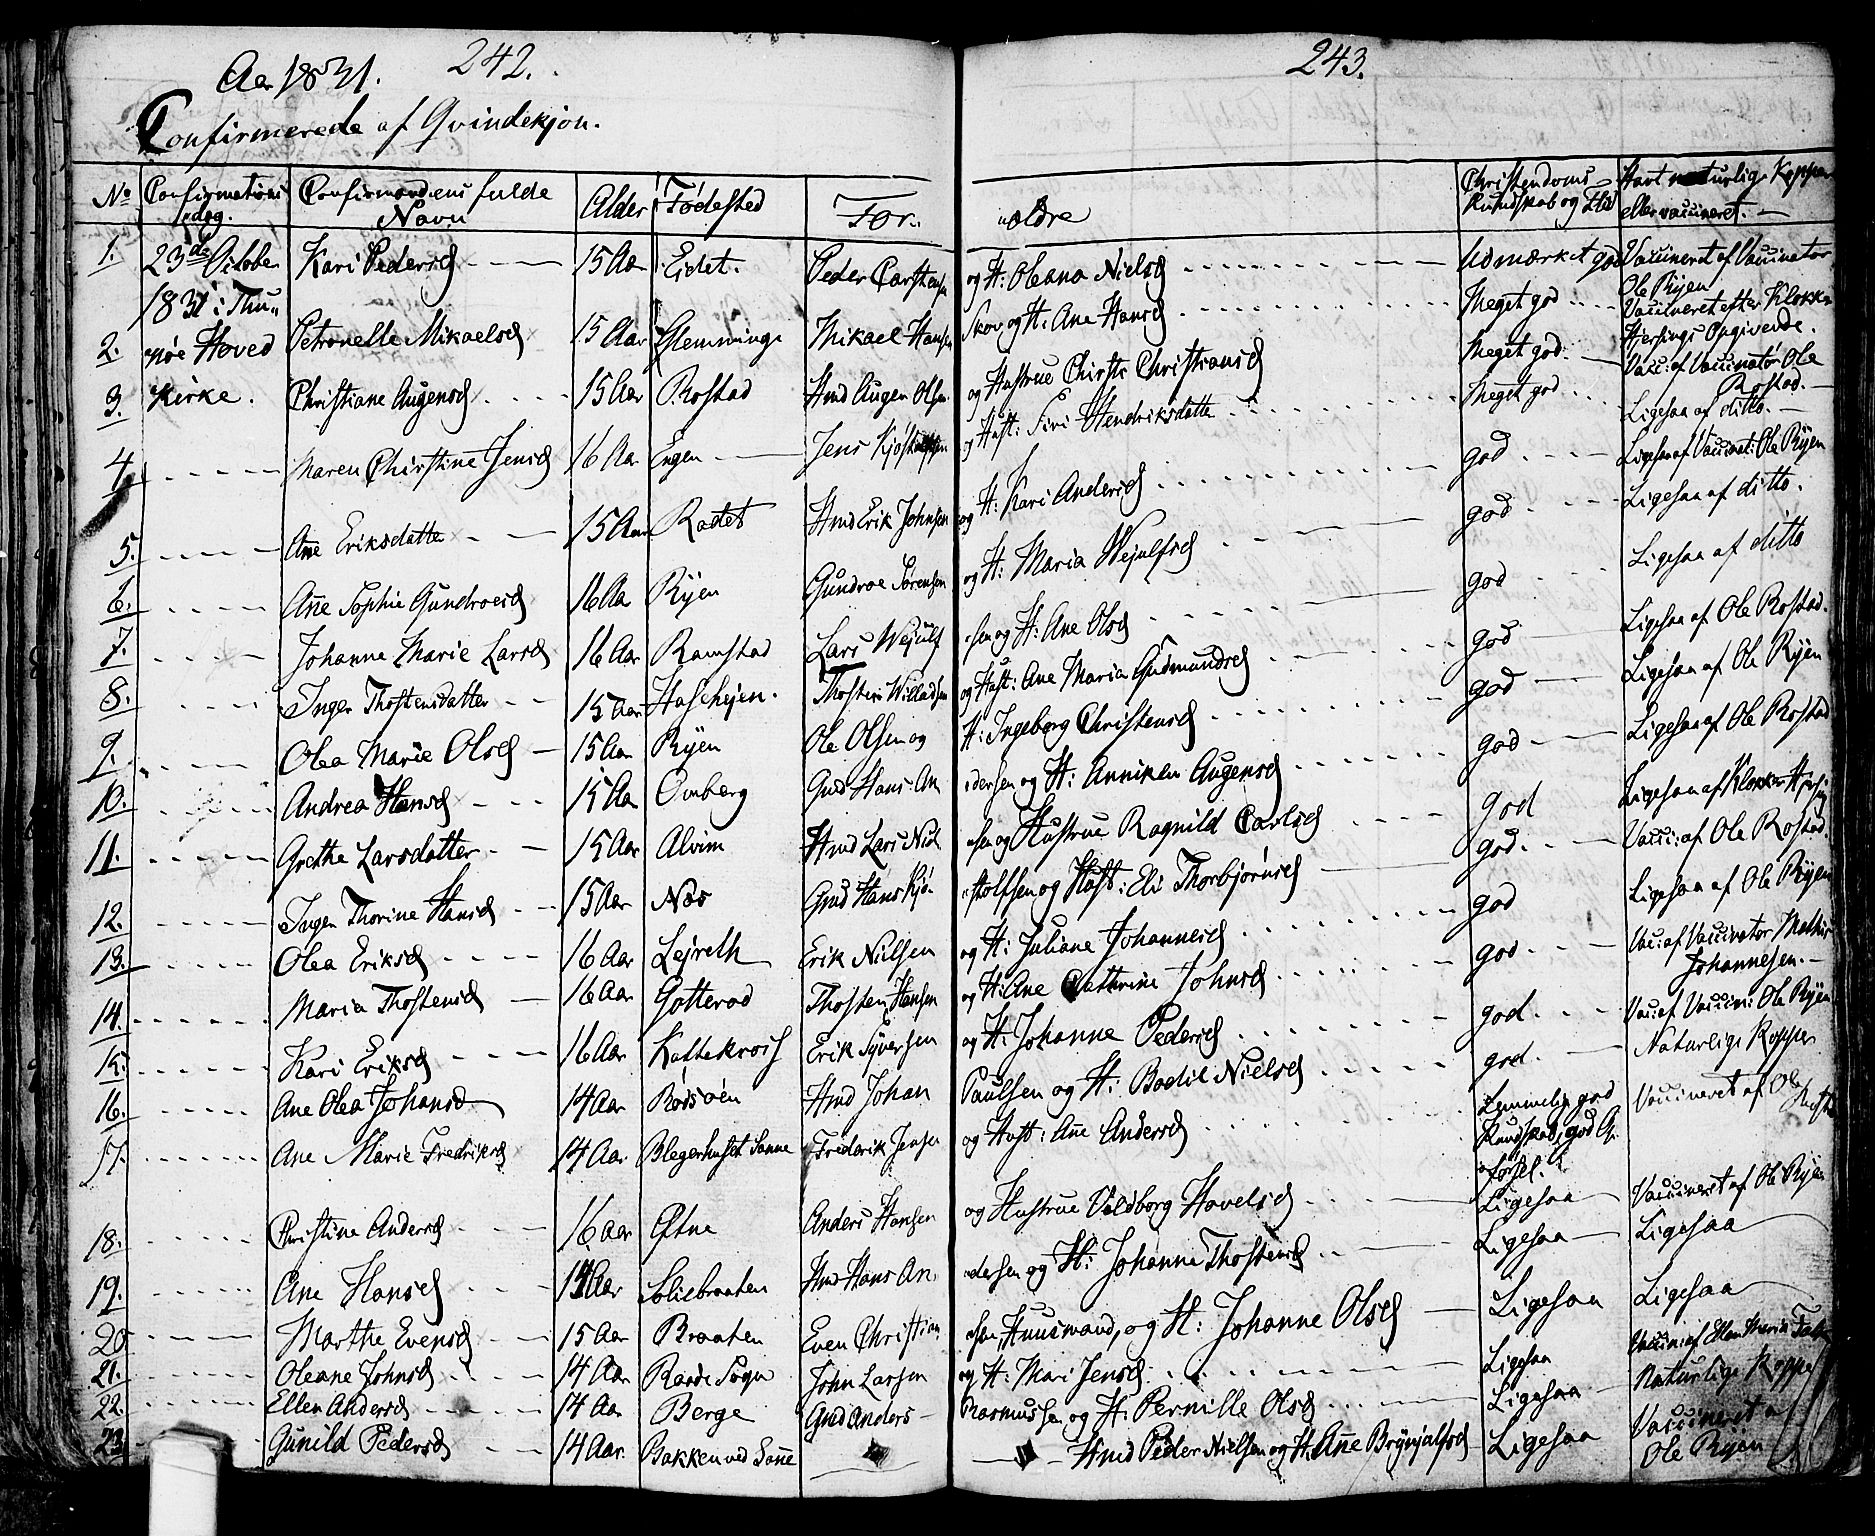 242.
243.
Aar 1831.
Confirmerede af Qvindekjøn.
No Confirmations dag. Confirmandens fulde Navn Alder Fødested For- ældre Christendoms Kundskab og Flid Havt naturlige Kopper eller vaccineret.
1. 23de October Kari Pedersd 15 Aar Eidet. Peder Carstensen og H: Oleana Nielsd Udmærket god Vaccineret af Vaccinatør Ole Ryen
1831 i Thu-
2. nöe Hoved Petronelle Mikaelsd 15 Aar Glemminge Mikael Hansen Skov og H: Ane Hansd Meget god Vaccineret efter Klokker Hjersings Opgivende.
3. Kirke. Christiane Augensd 15 Aar Rostad Hmd Augen Olsen og Hustrue Chirsti Christiansd Meget god Vacc: af Vaccinatør Ole Rostad.
4. Maren Chirstine Jensd 16 Aar Engen Jens og Hust: Siri Hendriksdatter Meget god Ligesaa af ditto.
5. Ane Eriksdatter 15 Aar Rødet Hmd Erik Johnsen og H: Kari Andersd god Ligesaa af Vaccinat: Ole Ryen
6. Ane Sophie Gundroesd 16 Aar Ryen Gundroe Sørensen og H: Maria Wejulfsd god Ligesaa af ditto.
7. Johanne Marie Larsd 16 Aar Ramstad Lars Wejulf- sen og H: Ane Olsd god Ligesaa af ditto
8. Inger Thostensdatter 15 Aar Haslehejen. Thosten Willadsen og Hust: Ane Maria Gudmundsd god Ligesaa af Ole Rostad.
9. Olea Marie Olsd 15 Aar Ryen Ole Olsen og H: Ingeborg Christensd god Ligesaa af Ole Ryen
10. Andrea Hansd 15 Aar Omberg Gmd Hans An- dersen og H: Anniken Augensd god Ligesaa af Ole Rostad
11. Grethe Larsdatter 15 Aar Alvim Hmd Lars Niel- sen og Hustrue Ragnild Carlsd god Ligesaa af Klokker Hjersing
12. Inger Thorine Hansd 15 Aar Næs Gmd Hans Kjø- stolfsen og Hust: Eli Thorbjørnsd god. Vacc: af Ole Rostad.
13. Olea Eriksd 16 Aar Lejreth Erik Nielsen og H: Juliane Johannesd god Ligesaa af Ole Ryen
14. Maria Thostensd 16 Aar Gotterød Thosten Hansen og H: Ane Cathrine Johnsd god Vac: af Vaccinatør Mathis Johannesen.
15. Kari Eriksd 16 Aar Kattekrois Erik Syversen og H: Johanne Pedersd god Vac: af Vaccin: Ole Ryen
16. Ane Olea Johansd 14 Aar Rödsöen Hmd Johan Paulsen og H: Bodil Nielsd god. Naturlige Kopper
17. Ane Marie Fredriksd 14 Aar Blegerhuset Sanne Frederik Jensen og Hust: Ane Andersd Temmelig god Kundskab, god Op- førsel. Vaccineret af Ole
18. Christine Andersd 16 Aar Øtne Anders Hansen og Hustrue Valdborg Hovelsd Ligesaa Vaccineret af Ole Ryen
19. Ane Hansd 14 Aar Soliebraaten Hmd Hans An- dersen og H: Johanne Thostensd Ligesaa Ligesaa
20 Marthe Evensd 15 Aar Braaten Even Christian- sen, Huusmand, og H: Johanne Olsd Ligesaa Ligesaa
21. Oleane Johnsd 14 Aar Raade Sogn John Larsen og H: Mari Jensd Ligesaa Vaccin: af Ellen Maria
22. Ellen Andersd 14 Aar Berge Gmd Anders Rasmussen og H: Pernille Olsd Ligesaa Naturlige Kopper
23. Gunild Pedersd 14 Aar. Bakken ved Sanne Hmd Peder Nielsen og H: Ane Brynjulfsd Ligesaa Vaccineret af Ole Ryen